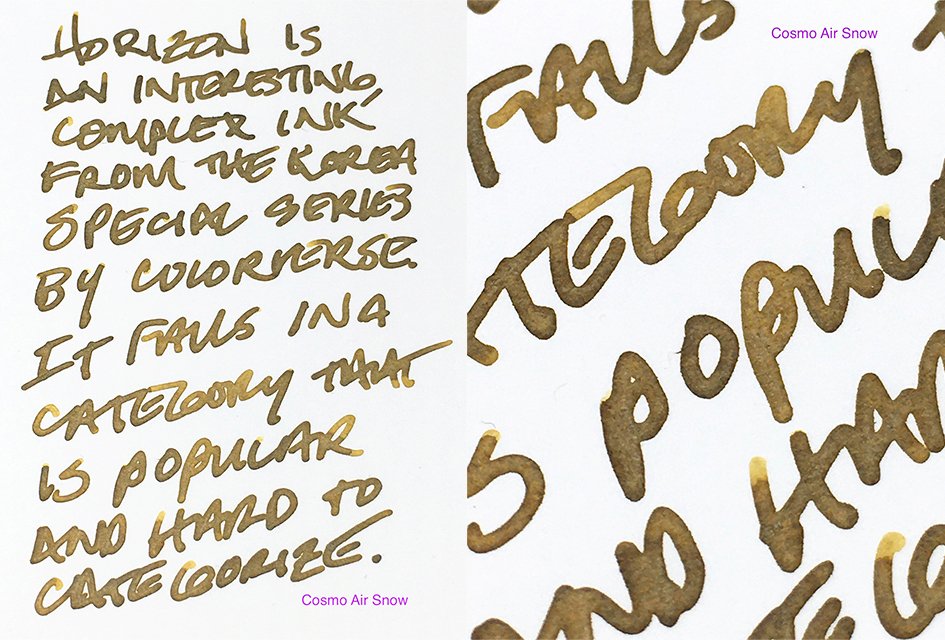 HORIZON IS
AN INTERESTING,
COMPLEX INK
FROM THE KOREA
SPECIAL SERIES
BY COLORVERSE.
IT FALLS IN A
CATEGORY THAT
IS POPULAR
AND HARD TO
CATEGORIZE.
Cosmo Air Snow
Cosmo Air Snow
FALLS
TEGORY
S POPUL
ND HAR